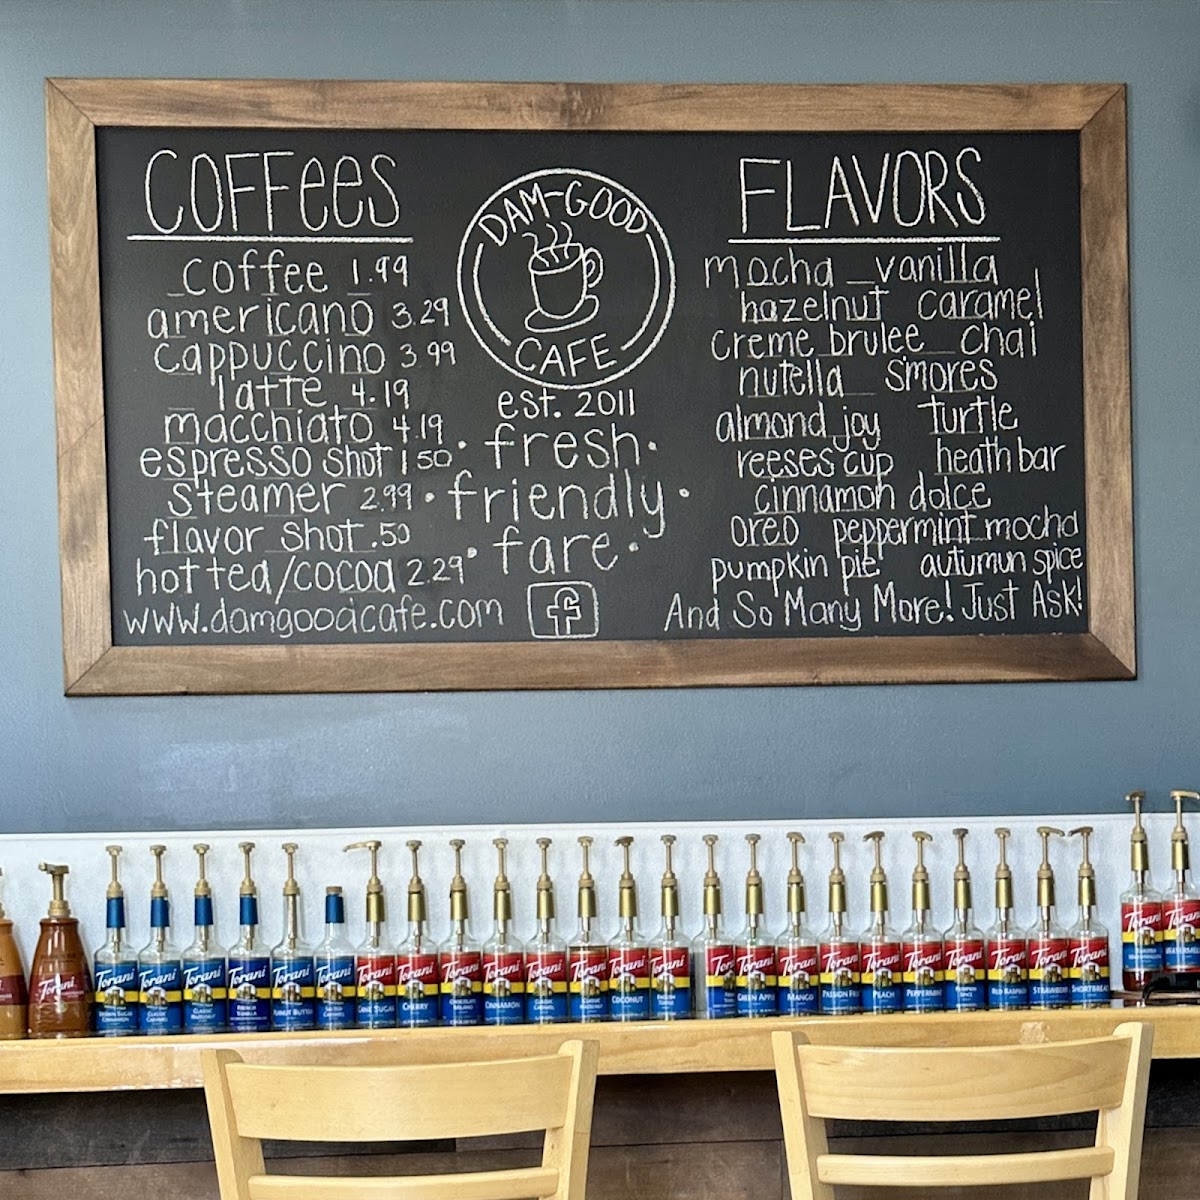 COFFEES
coffee 1.99
americano 3.29
cappuccino 3.99
latte 4.19
macchiato 4.19
espresso shot 1.50
steamer 2.99
flavor shot .50
hot tea/cocoa 2.29
www.damgoodcafe.com
DAM-GOOD
CAFE
est. 2011
• fresh •
• friendly •
• fare •
f
FLAVORS
mocha vanilla
hazelnut caramel
creme brulee chai
nutella s'mores
almond joy turtle
reeses cup heath bar
cinnamon dolce
oreo peppermint mocha
pumpkin pie autumun spice
And So Many More! Just Ask!
Torani
Torani
CLASSIC CARAMEL
Torani
CLASSIC HAZELNUT
Torani
Torani
PEANUT BUTTER
Torani
SALTED CARAMEL
Torani
CANE SUGAR
Torani
CHERRY
Torani
Torani
CINNAMON
Torani
Torani
Torani
COCONUT
Torani
Torani
Torani
GREEN APPLE
Torani
MANGO
Torani
PASSION FRUIT
Torani
PEACH
Torani
PEPPERMINT
Torani
PUMPKIN SPICE
Torani
RED RASPBERRY
Torani
STRAWBERRY
Torani
SHORTBREAD
Torani
Torani